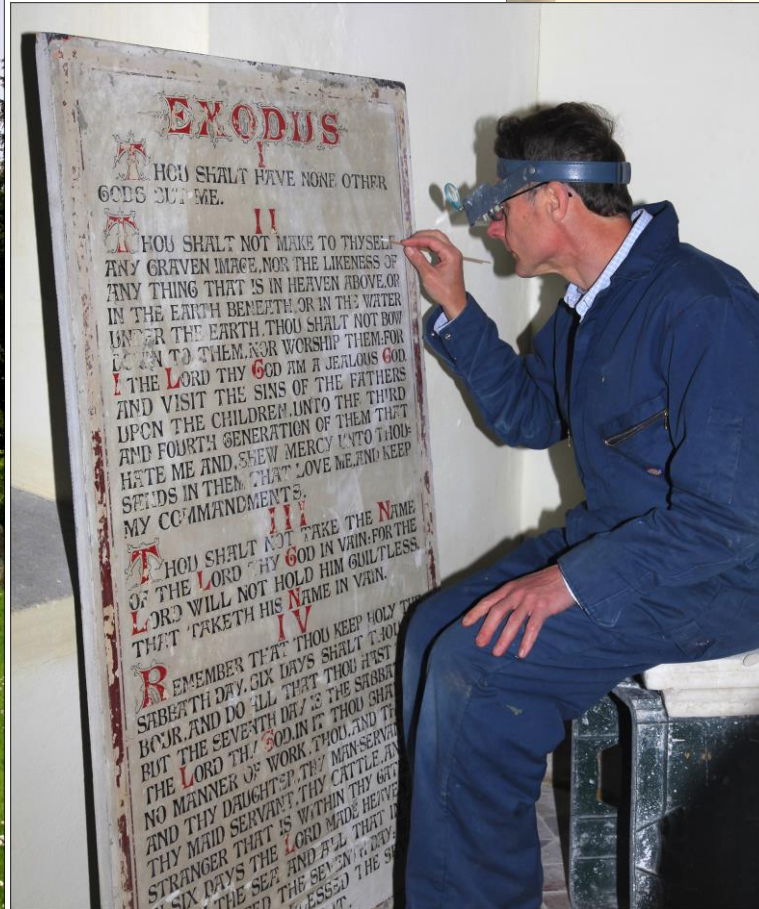 EXODUS
I
THOU SHALT HAVE NONE OTHER
GODS BUT ME.
II
THOU SHALT NOT MAKE TO THYSELF
ANY GRAVEN IMAGE, NOR THE LIKENESS OF
ANY THING THAT IS IN HEAVEN ABOVE, OR
IN THE EARTH BENEATH, OR IN THE WATER
UNDER THE EARTH. THOU SHALT NOT BOW
DOWN TO THEM, NOR WORSHIP THEM: FOR
I THE LORD THY GOD AM A JEALOUS GOD,
AND VISIT THE SINS OF THE FATHERS
UPON THE CHILDREN, UNTO THE THIRD
AND FOURTH GENERATION OF THEM THAT
HATE ME AND, SHEW MERCY UNTO THOU:
SANDS IN THEM THAT LOVE ME, AND KEEP
MY COMMANDMENTS.
III
THOU SHALT NOT TAKE THE NAME
OF THE LORD THY GOD IN VAIN: FOR THE
LORD WILL NOT HOLD HIM GUILTLESS,
THAT TAKETH HIS NAME IN VAIN.
IV
REMEMBER THAT THOU KEEP HOLY THE
SABBATH DAY. SIX DAYS SHALT THOU
BOUR, AND DO ALL THAT THOU HAST
BUT THE SEVENTH DAY IS THE SABBA
THE LORD THY GOD. IN IT THOU SHA
NO MANNER OF WORK, THOU, AND TH
AND THY DAUGHTER, THY MAN-SERVAN
THY MAID SERVANT, THY CATTLE, AN
STRANGER THAT IS WITHIN THY GAT
SIX DAYS THE LORD MADE HEAVE
THE SEA, AND ALL THAT I
THE SEVENTH DAY:
BLESSED THE SE